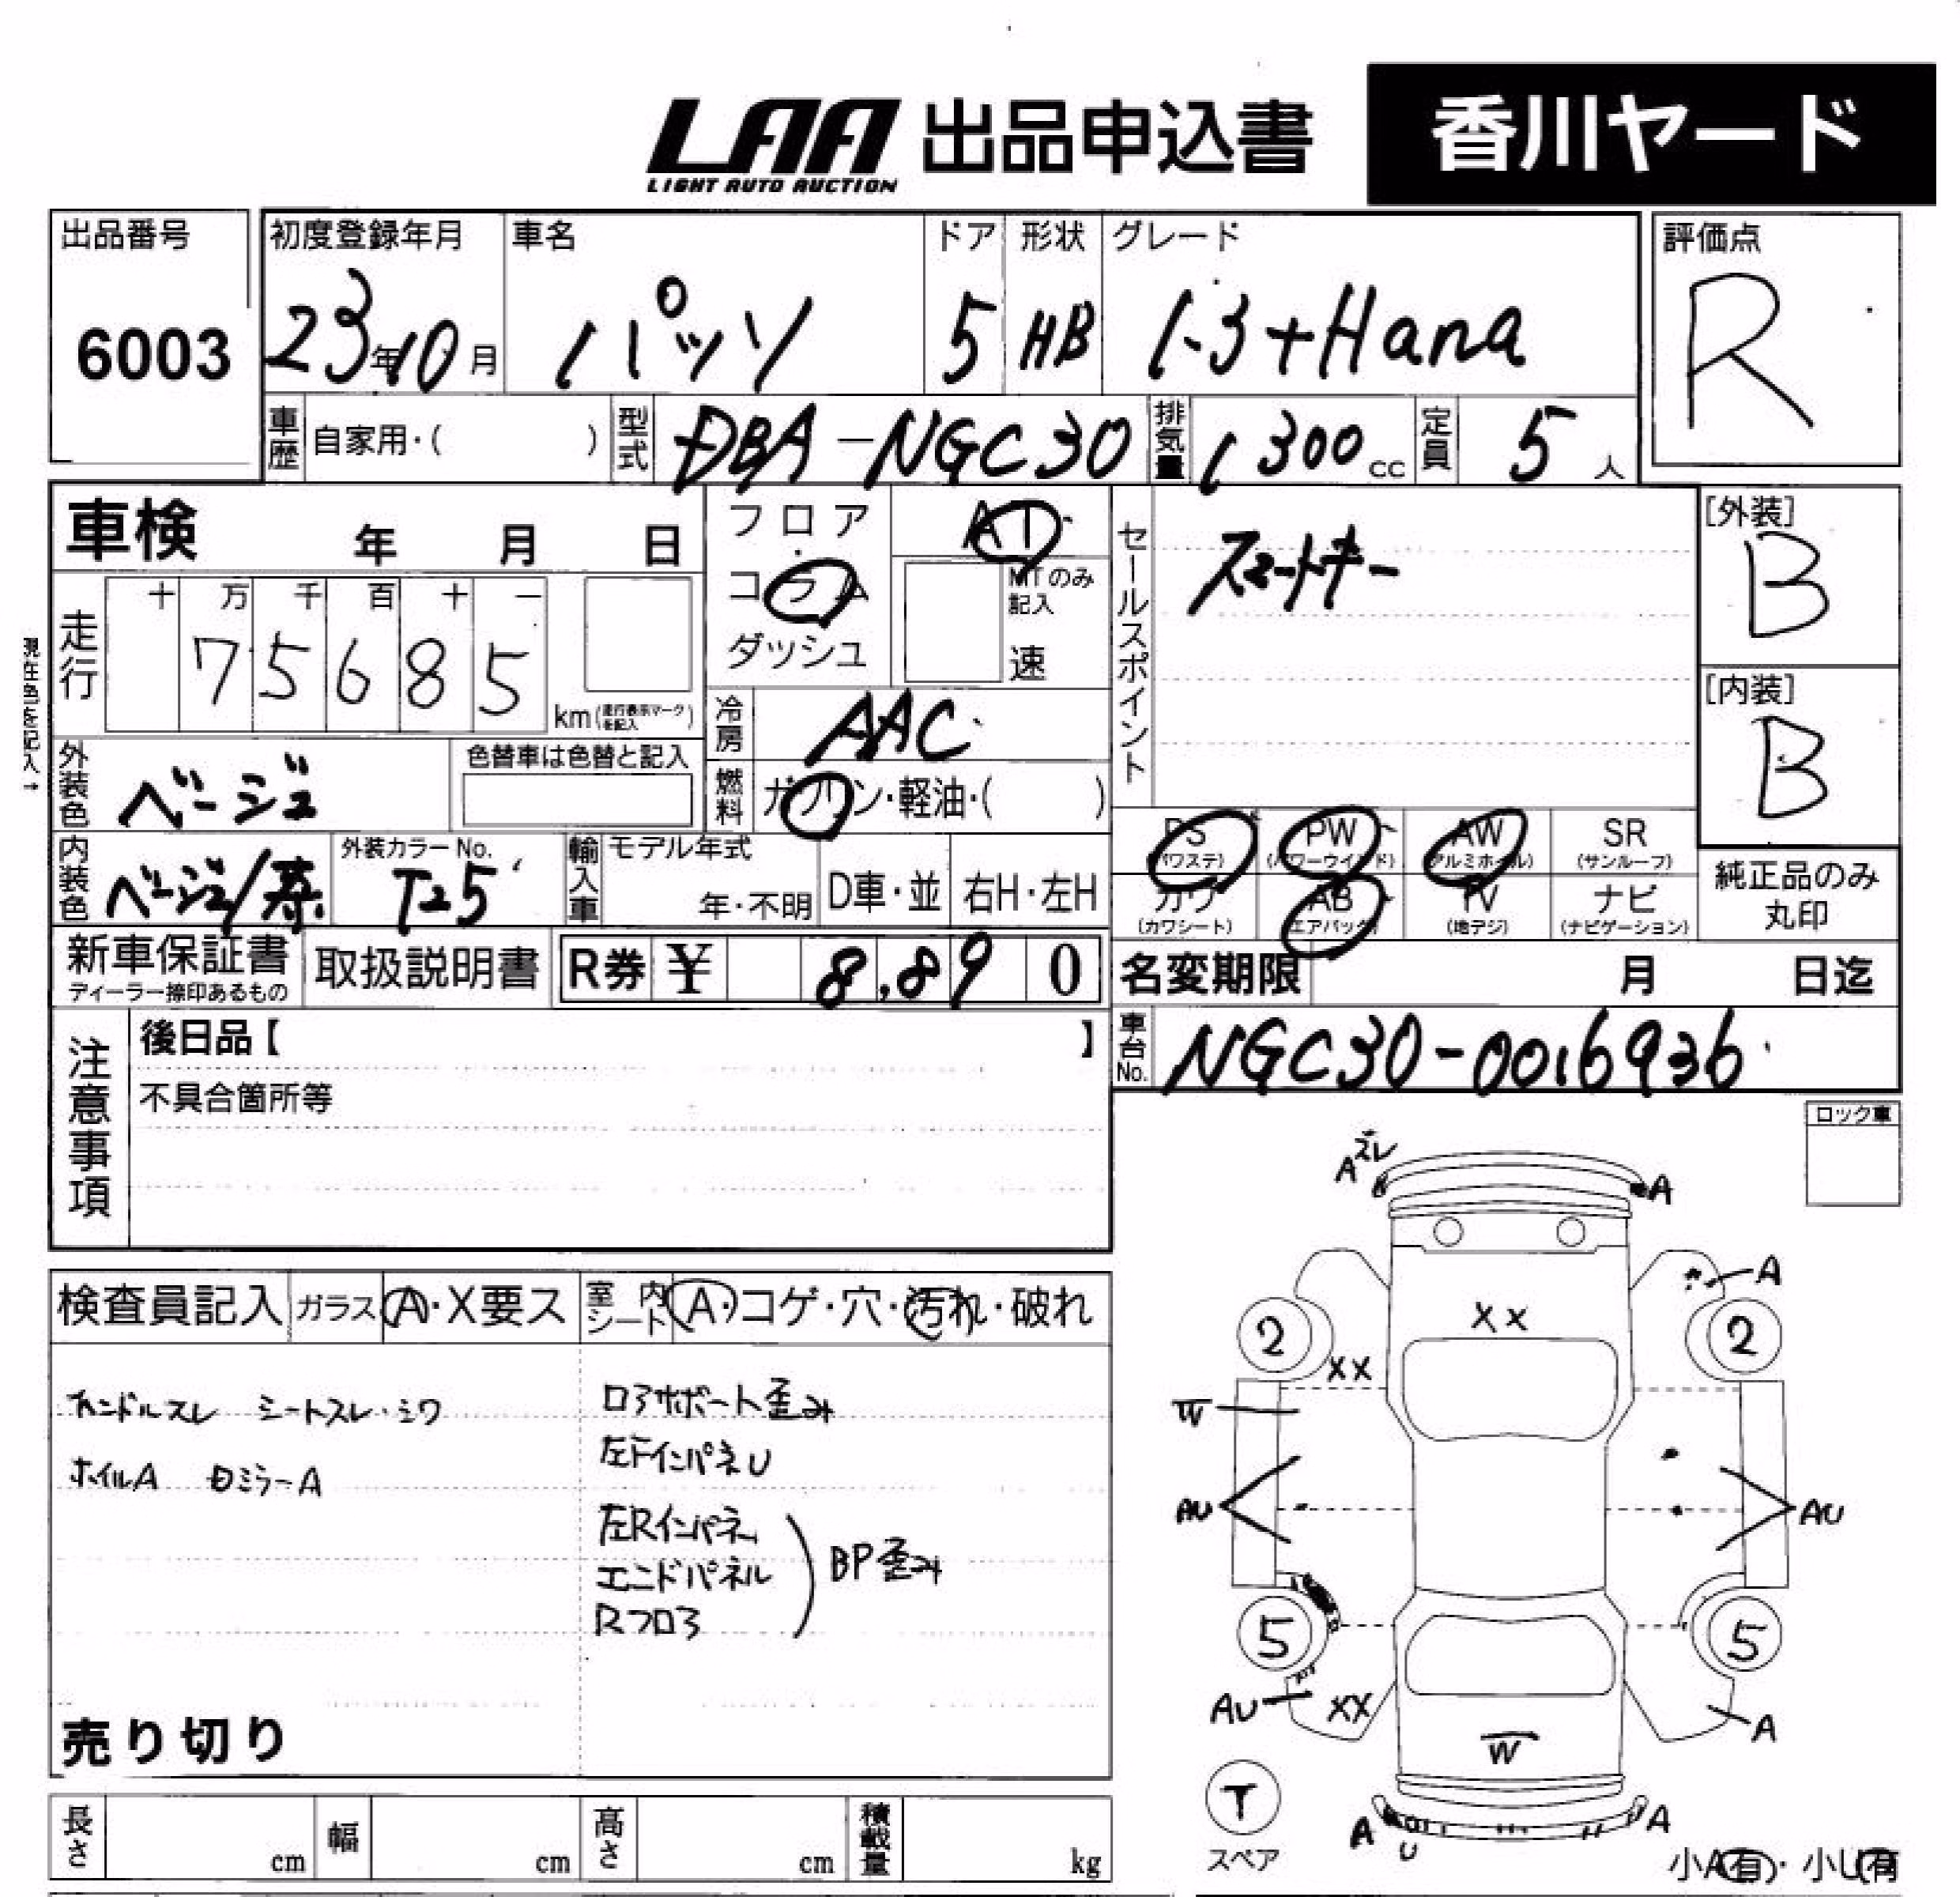 LAA 出品申込書 香川ヤード
LIGHT AUTO AUCTION
出品番号 初度登録年月 車名 ドア 形状 グレード 評価点
6003 23年10月 パッソ 5 HB 1.3+Hana R
車歴 自家用・( ) 型式 DBA-NGC30 排気量 1300cc 定員 5人
車検 年 月 日
フロア
コラム
ダッシュ
AT
MTのみ
記入
速
セールスポイント スマートキー
[外装]
B
[内装]
B
現在色を記入→
走行 十 万 千 百 十 一
7 5 6 8 5 km(走行表示マークを記入)
冷房 AAC
外装色 ベージュ 色替車は色替と記入
燃料 ガソリン・軽油・( )
PS PW AW SR
(パワステ) (パワーウインド) (アルミホイル) (サンルーフ)
カワ AB TV ナビ
(カワシート) (エアバッグ) (地デジ) (ナビゲーション)
純正品のみ
丸印
内装色 ベージュ/茶 外装カラーNo. T25
輸入車 モデル年式 年・不明 D車・並 右H・左H
新車保証書 取扱説明書 R券 ¥ 8,89 0
ディーラー捺印あるもの
名変期限 月 日迄
車台No. NGC30-0016936
注意事項
後日品【 】
不具合箇所等
ロック車
検査員記入 ガラス A・X要ス 室内シート A・コゲ・穴・汚れ・破れ
ハンドルスレ シートスレ・シワ
ホイルA
ミラーA
ロアサポート歪み
左FインパネU
左Rインパネ
エンドパネル
Rフロア
BP歪み
売り切り
ズレ
A
A
A
XX
2
2
XX
W
AU
AU
5
5
AU
XX
A
W
T
スペア
A
U
A
小A有・小U有
長さ cm 幅 cm 高さ cm 積載量 kg